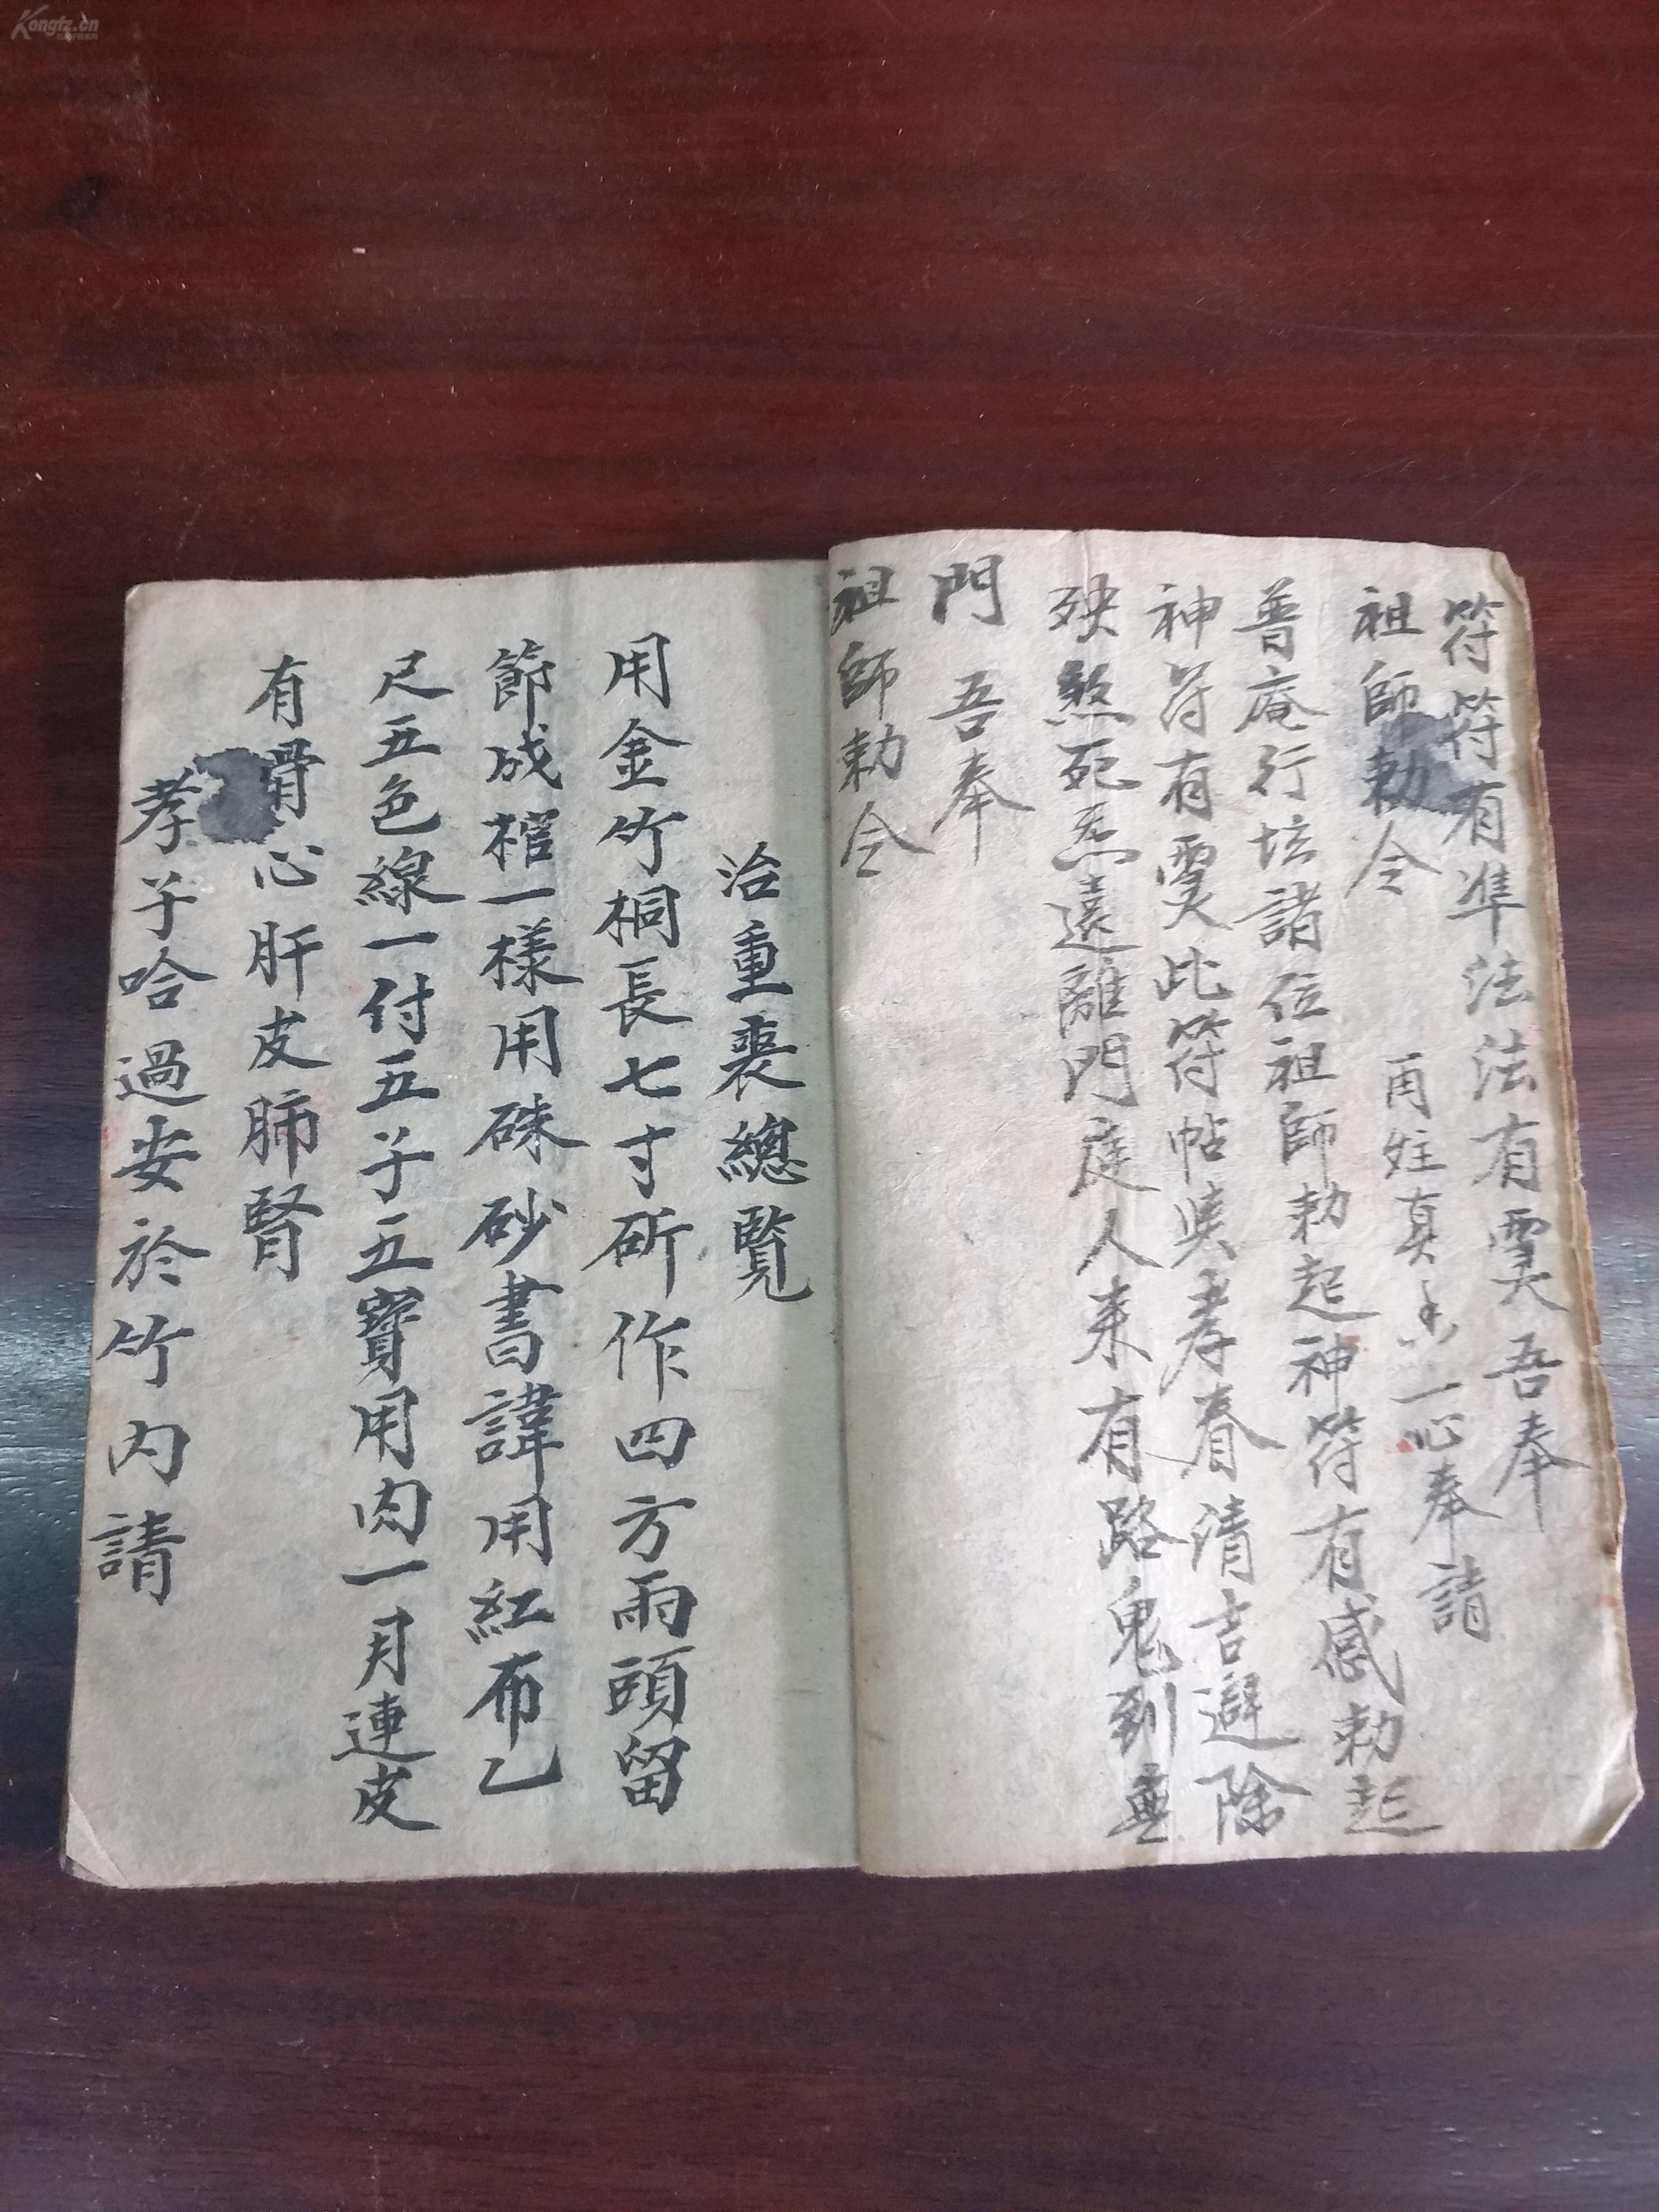 Kongfz.cn
符符有准法法有灵吾奉
祖師勅令
再炷真香一心奉請
普庵行坛諸位祖師勅起神符有感勅起
神符有灵此符帖 孝眷清吉避除
殃煞死炁遠離門庭人来有路鬼到無
門 吾奉
祖師勅令
治重喪總覧
用金竹桐長七寸斫作四方両頭留
節成棺一樣用硃砂書諱用紅布乙
尺五色線一付五子五寳用肉一月連皮
有骨心肝皮肺腎
孝子哈過安於竹内請